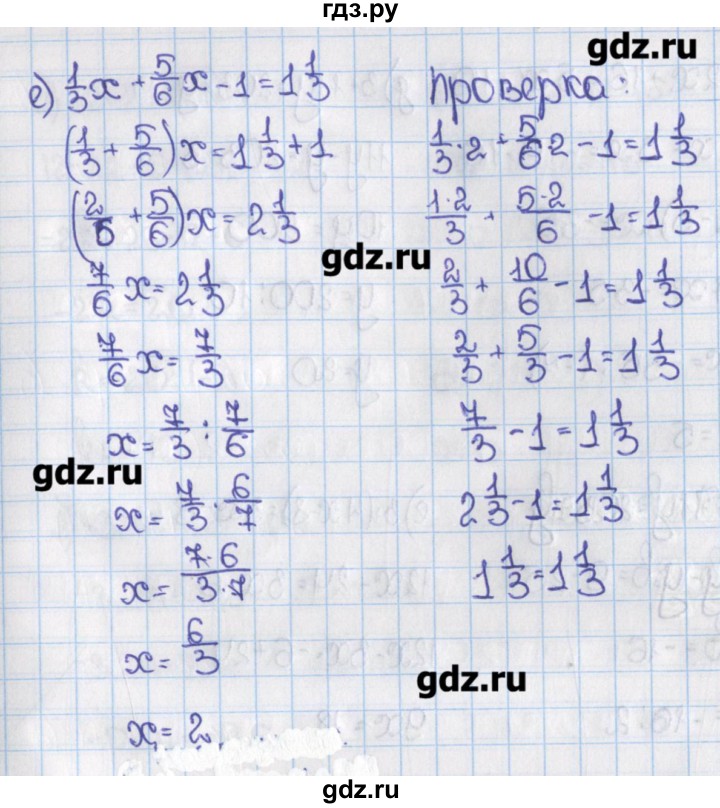 гдз.ру
gdz.ru
е) 1/3 x + 5/6 x - 1 = 1 1/3
(1/3 + 5/6) x = 1 1/3 + 1
(2/6 + 5/6) x = 2 1/3
7/6 x = 2 1/3
7/6 x = 7/3
x = 7/3 : 7/6
x = 7/3 · 6/7
x = 7·6/3·7
x = 6/3
x = 2
Проверка:
1/3 · 2 + 5/6 · 2 - 1 = 1 1/3
1·2/3 + 5·2/6 - 1 = 1 1/3
2/3 + 10/6 - 1 = 1 1/3
2/3 + 5/3 - 1 = 1 1/3
7/3 - 1 = 1 1/3
2 1/3 - 1 = 1 1/3
1 1/3 = 1 1/3
gdz.ru
gdz.ru
gdz.ru
gdz.ru